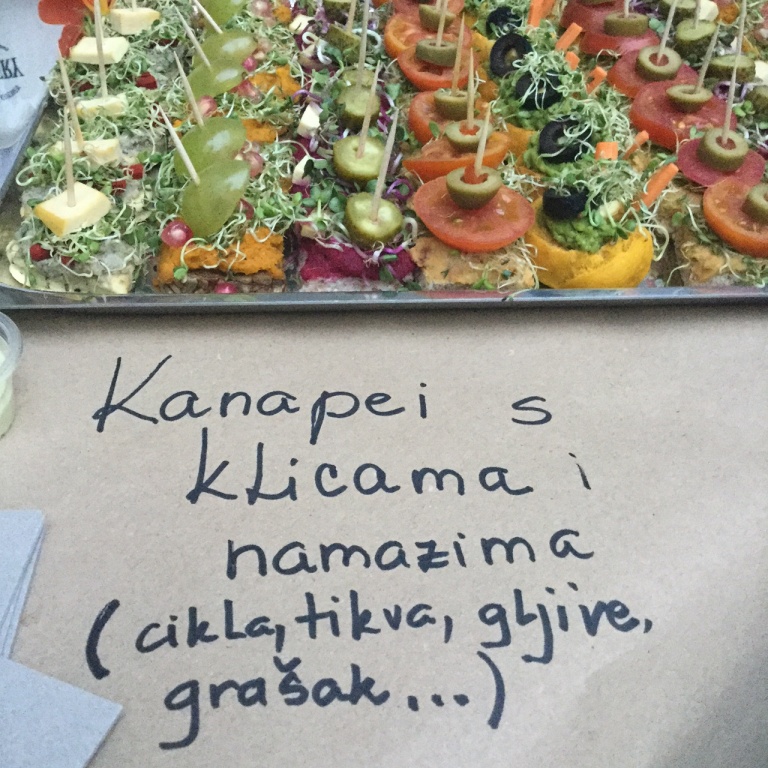 Kanapei s
klicama i
namazima
(cikla, tikva, gljive,
grašak...)